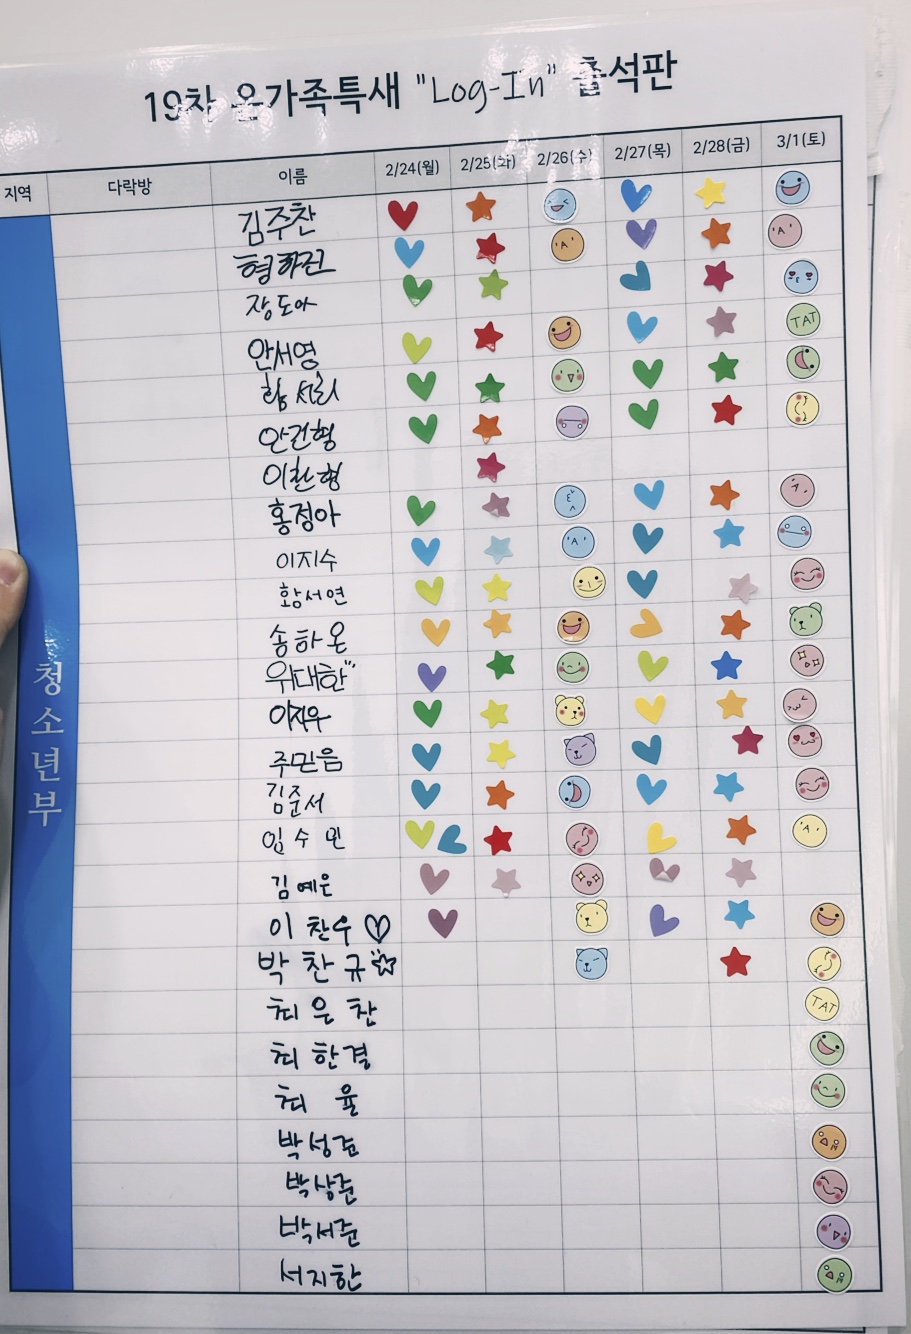 19차 온가족특새 "Log-In" 출석판
지역 다락방 이름 2/24(월) 2/25(화) 2/26(수) 2/27(목) 2/28(금) 3/1(토)
청소년부
김주찬
장도아
안서영
안건형
이찬형
홍정아
이지수
황서연
송하온
위대한
이지우
주믿음
김준서
임수민
김예은
이찬우♡
박찬규☆
최은찬
최한결
최율
박성준
박상준
박서준
서지한
TAT
TAT